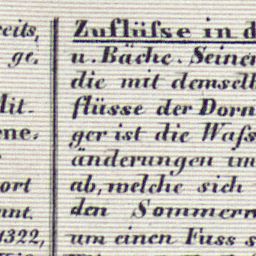 eits,
ge.
Mit-
ene.
ort
nnt.
1322,
Zuflüſse in d
u. Bäche. Seinen
die mit demselb
flüsse der Dorn
ger ist die Waſs
änderungen im
ab, welche sich
den Sommerm
um einen Fuss s